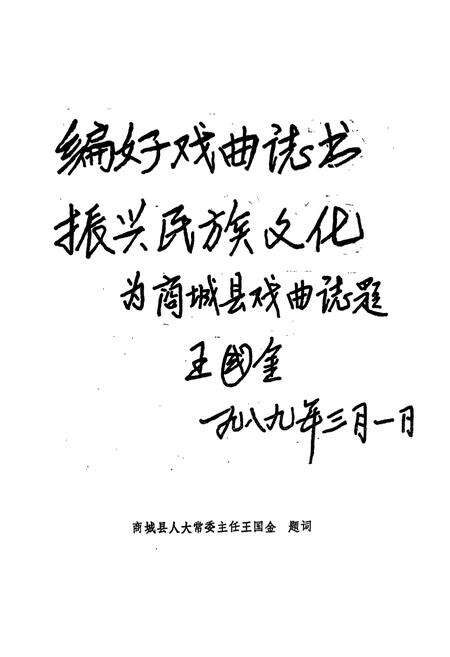 编好戏曲誌书
振兴民族文化
为商城县戏曲誌题
王国金
一九八九年三月一日
商城县人大常委主任王国金　题词